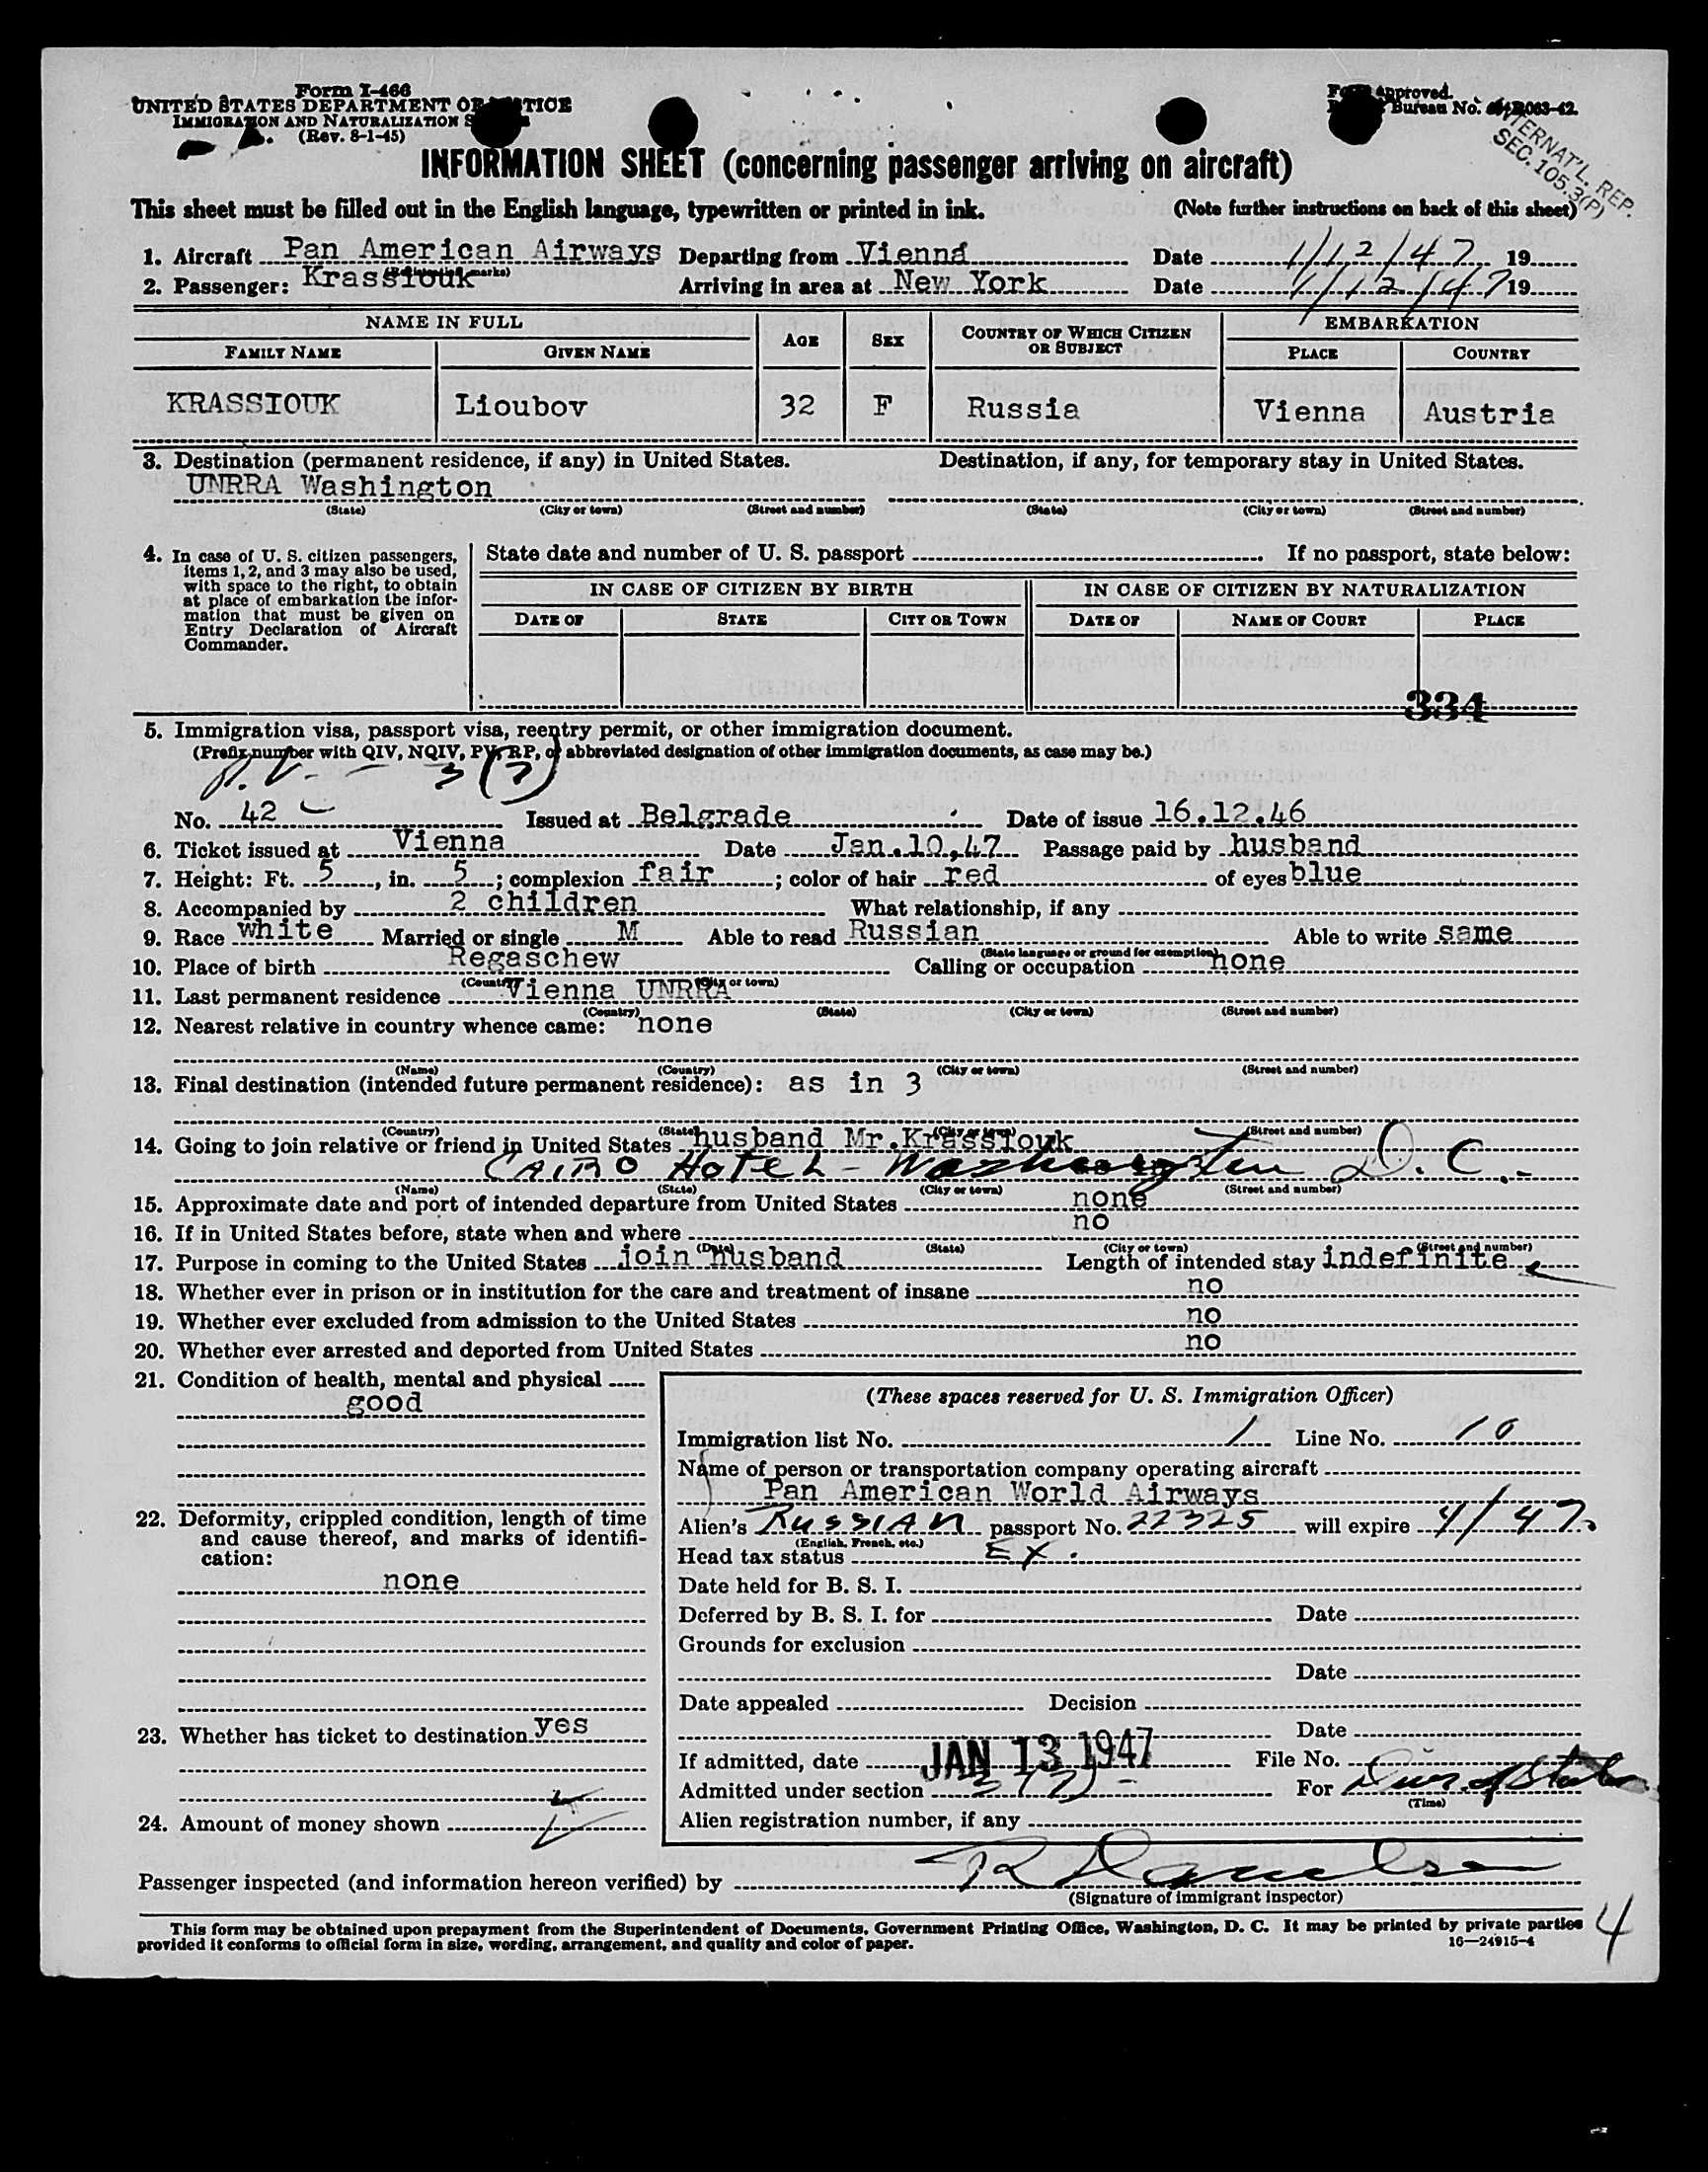 Form I-466
UNITED STATES DEPARTMENT OF JUSTICE
IMMIGRATION AND NATURALIZATION
(Rev. 8-1-45)
Form Approved.
Bureau No.
INTERNAT'L. REP.
SEC. 105.3(P)
INFORMATION SHEET (concerning passenger arriving on aircraft)
This sheet must be filled out in the English language, typewritten or printed in ink. (Note further instructions on back of this sheet)
1. Aircraft Pan American Airways Departing from Vienna Date 1/12/47 19
(Registration marks)
2. Passenger: Krassiouk Arriving in area at New York Date 1/12/47 19
NAME IN FULL AGE SEX COUNTRY OF WHICH CITIZEN OR SUBJECT EMBARKATION
FAMILY NAME GIVEN NAME PLACE COUNTRY
KRASSIOUK Lioubov 32 F Russia Vienna Austria
3. Destination (permanent residence, if any) in United States. Destination, if any, for temporary stay in United States.
UNRRA Washington
(State) (City or town) (Street and number) (State) (City or town) (Street and number)
4. In case of U. S. citizen passengers, items 1, 2, and 3 may also be used, with space to the right, to obtain at place of embarkation the information that must be given on Entry Declaration of Aircraft Commander.
State date and number of U. S. passport If no passport, state below:
IN CASE OF CITIZEN BY BIRTH IN CASE OF CITIZEN BY NATURALIZATION
DATE OF STATE CITY OR TOWN DATE OF NAME OF COURT PLACE
334
5. Immigration visa, passport visa, reentry permit, or other immigration document.
(Prefix number with QIV, NQIV, PV, RP, or abbreviated designation of other immigration documents, as case may be.)
P.V. - 3(7)
No. 42 Issued at Belgrade Date of issue 16.12.46
6. Ticket issued at Vienna Date Jan.10,47 Passage paid by husband
7. Height: Ft. 5, in. 5; complexion fair; color of hair red of eyes blue
8. Accompanied by 2 children What relationship, if any
9. Race white Married or single M Able to read Russian Able to write same
(State language or ground for exemption)
10. Place of birth Regaschew Calling or occupation none
(Country) (City or town)
11. Last permanent residence Vienna UNRRA
(Country) (State) (City or town) (Street and number)
12. Nearest relative in country whence came: none
(Name) (Country) (City or town) (Street and number)
13. Final destination (intended future permanent residence): as in 3
(Country) (State) (City or town) (Street and number)
14. Going to join relative or friend in United States husband Mr.Krassiouk
CAIRO HOTEL - Washington D. C.
(Name) (State) (City or town) (Street and number)
15. Approximate date and port of intended departure from United States none
16. If in United States before, state when and where no
(Date) (State) (City or town) (Street and number)
17. Purpose in coming to the United States join husband Length of intended stay indefinite
18. Whether ever in prison or in institution for the care and treatment of insane no
19. Whether ever excluded from admission to the United States no
20. Whether ever arrested and deported from United States no
21. Condition of health, mental and physical
good
22. Deformity, crippled condition, length of time and cause thereof, and marks of identification:
none
23. Whether has ticket to destination yes
24. Amount of money shown
(These spaces reserved for U. S. Immigration Officer)
Immigration list No. 1 Line No. 10
Name of person or transportation company operating aircraft
Pan American World Airways
Alien's RUSSIAN passport No. 22325 will expire 4/47
(English, French, etc.)
Head tax status EX.
Date held for B. S. I.
Deferred by B. S. I. for Date
Grounds for exclusion
Date
Date appealed Decision
Date
If admitted, date JAN 13 1947 File No.
Admitted under section 3(7) - For Dur. of Status
(Time)
Alien registration number, if any
Passenger inspected (and information hereon verified) by
(Signature of immigrant inspector)
This form may be obtained upon prepayment from the Superintendent of Documents, Government Printing Office, Washington, D. C. It may be printed by private parties
provided it conforms to official form in size, wording, arrangement, and quality and color of paper. 16—24915-4
4